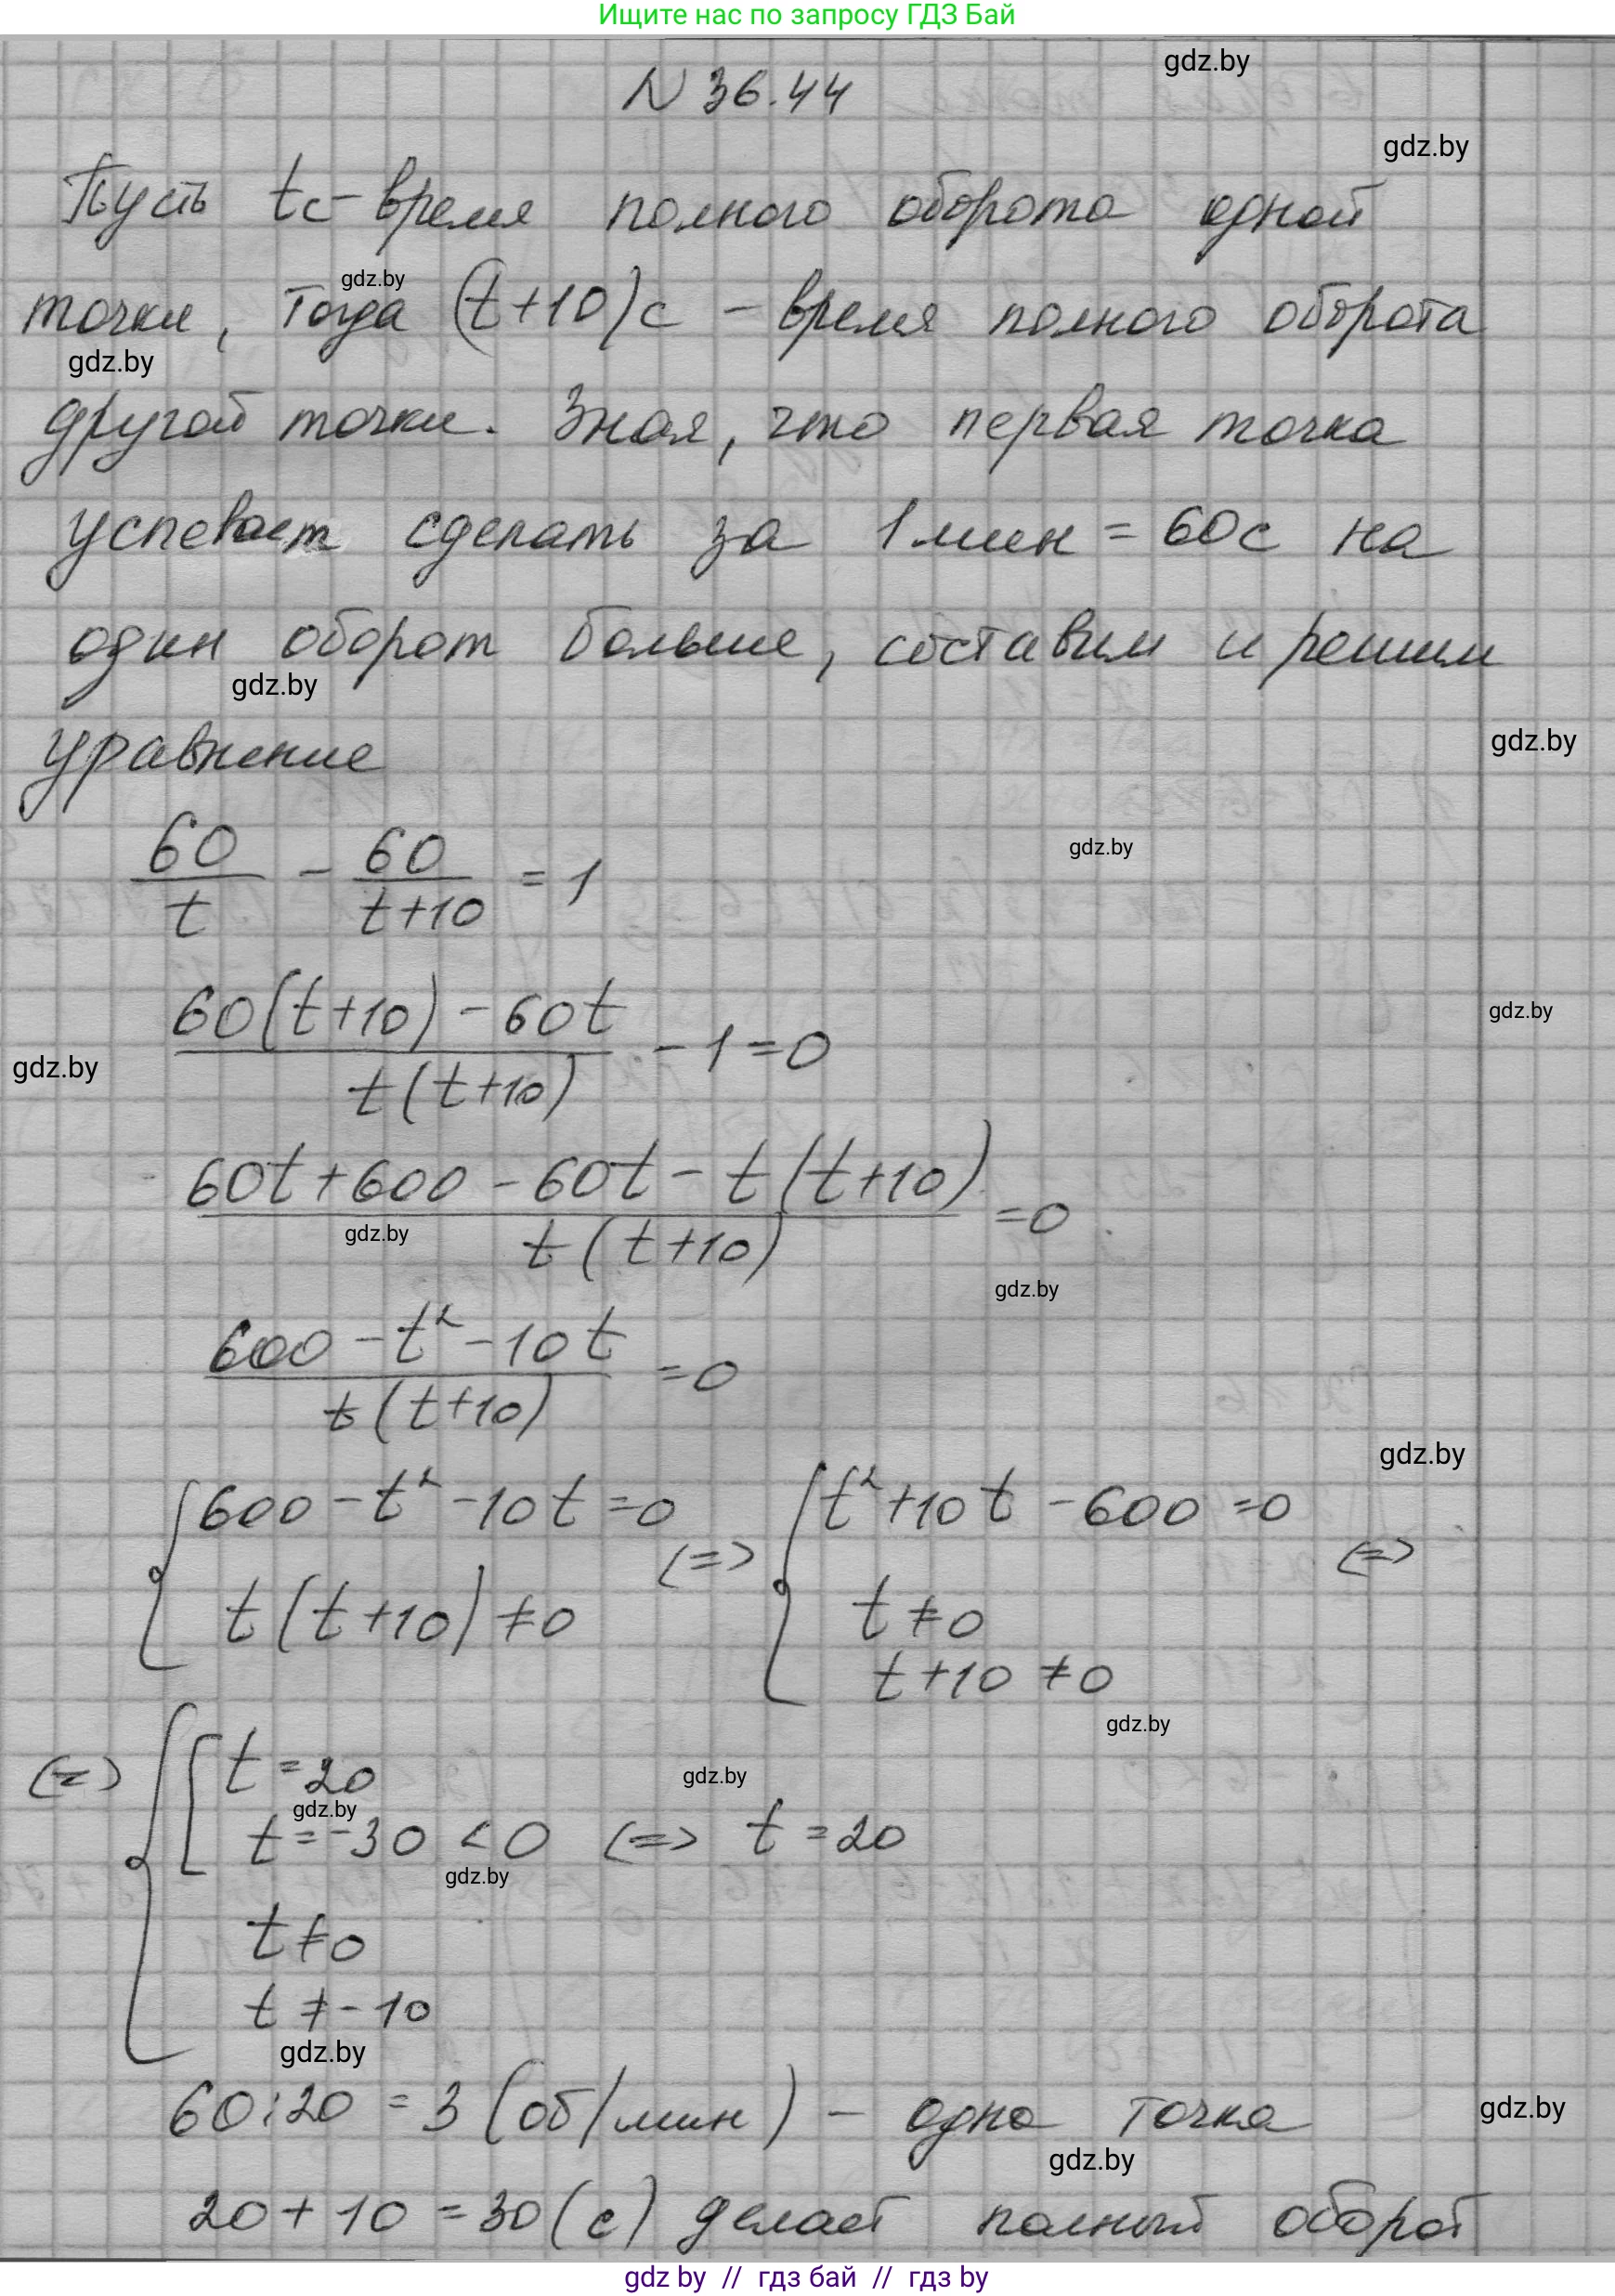 Ищите нас по запросу ГДЗ Бай
gdz.by
N 36.44
gdz.by
Пусть tc - время полного оборота одной
gdz.by
точки, тогда (t+10)с - время полного оборота
gdz.by
другой точки. Зная, что первая точка
успевает сделать за 1 мин = 60с на
один оборот больше, составим и решим
gdz.by
уравнение
gdz.by
60/t - 60/(t+10) = 1
gdz.by
gdz.by
(60(t+10) - 60t)/(t(t+10)) - 1 = 0
gdz.by
(60t + 600 - 60t - t(t+10))/(t(t+10)) = 0
gdz.by
gdz.by
(600 - t² - 10t)/(t(t+10)) = 0
gdz.by
{600 - t² - 10t = 0 <=> {t² + 10t - 600 = 0 <=>
t(t+10) ≠ 0 t ≠ 0
t + 10 ≠ 0
gdz.by
<=> {[t = 20
gdz.by
gdz.by
t = -30 < 0 <=> t = 20
gdz.by
t ≠ 0
t ≠ -10
gdz.by
60:20 = 3 (об/мин) - одна точка
gdz.by
gdz.by
20 + 10 = 30 (с) делает полный оборот
gdz by // гдз бай // гдз by